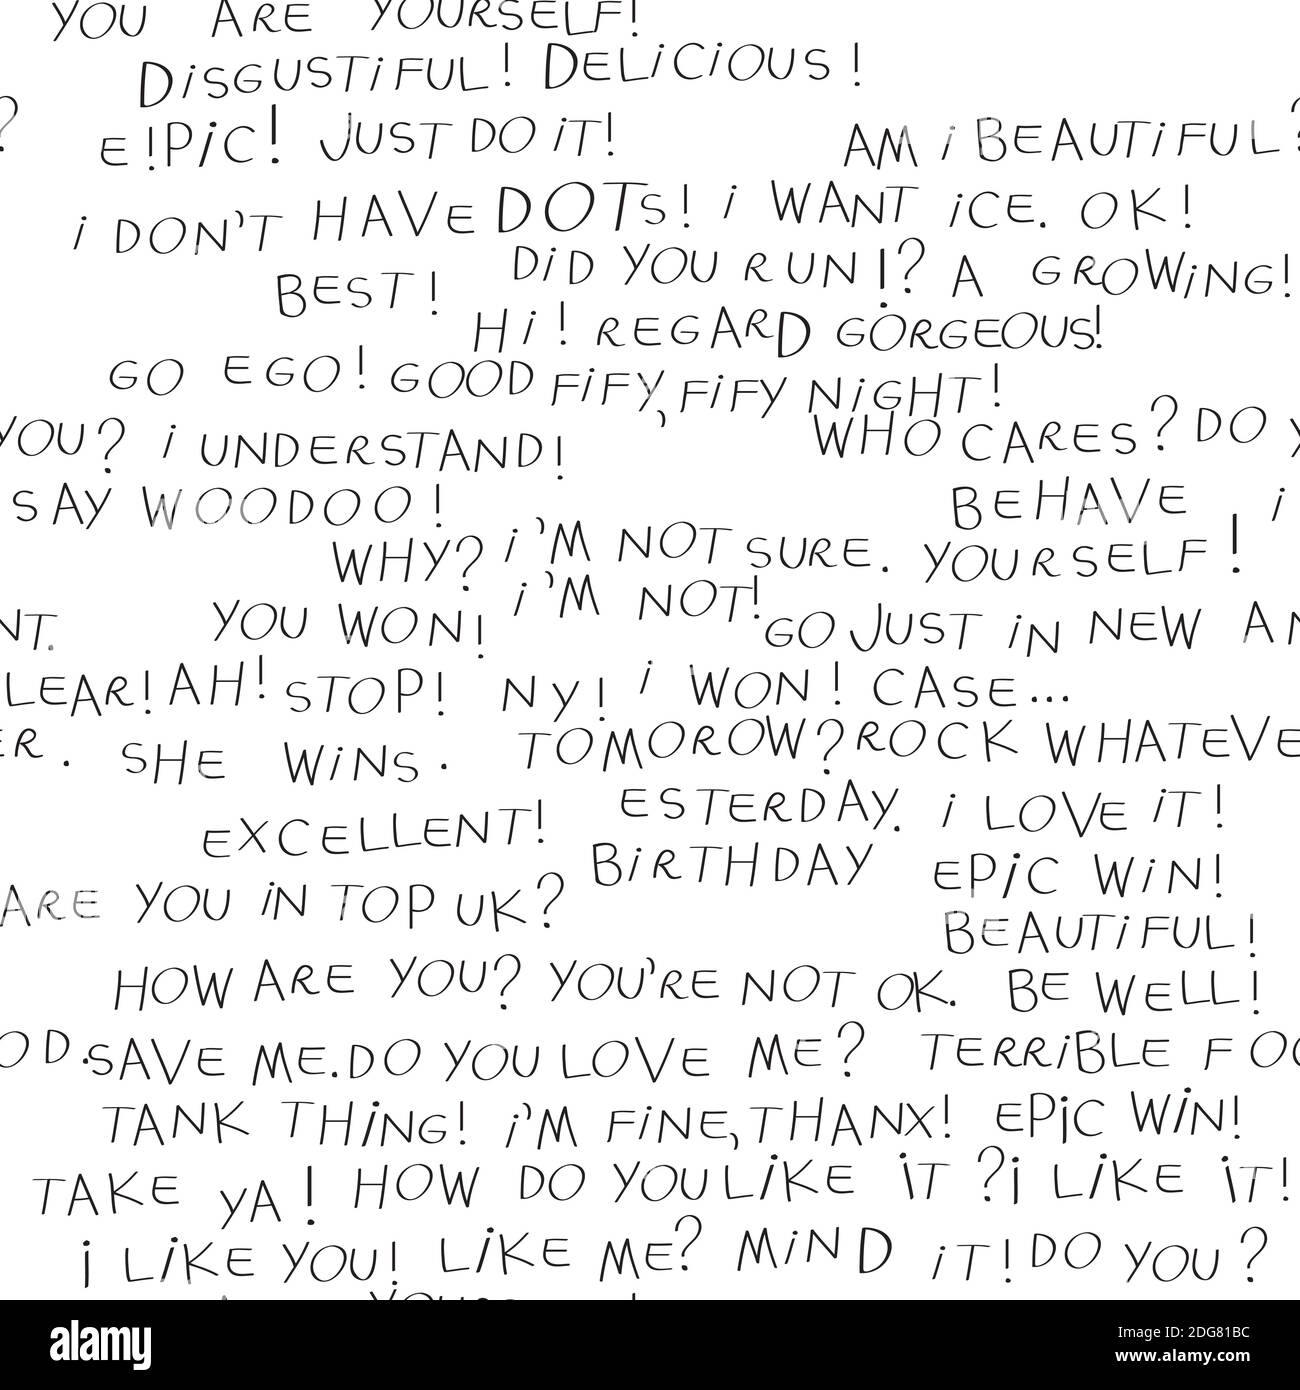 YOU ARE YOURSELF!
DiSGUSTiFUL! DELiCiOUS!
? E!PiC! JUST DO iT! AM i BEAUTiFUL?
i DON'T HAVE DOTS! i WANT iCE. OK!
BEST! DiD YOU RUN!? A GROWiNG!
Hi! REGARD GORGEOUS!
GO EGO! GOOD FiFY, FiFY NiGHT!
YOU? i UNDERSTAND! WHO CARES? DO Y
SAY WOODOO! BEHAVE i
WHY? i'M NOT SURE. YOURSELF!
i'M NOT!
NT. YOU WON! GO JUST iN NEW AN
LEAR! AH! STOP! NY! i WON! CASE...
ER. SHE WiNS. TOMOROW? ROCK WHATEVE
EXCELLENT! ESTERDAY. i LOVE iT!
BiRTHDAY EPiC WiN!
ARE YOU iN TOP UK?
BEAUTiFUL!
HOW ARE YOU? YOU'RE NOT OK. BE WELL!
OD. SAVE ME. DO YOU LOVE ME? TERRiBLE FOO
TANK THiNG! i'M FiNE, THANX! EPiC WiN!
TAKE YA! HOW DO YOU LiKE iT? i LiKE iT!
i LiKE YOU! LiKE ME? MiND iT! DO YOU?
alamy
Image ID: 2DG81BC
www.alamy.com